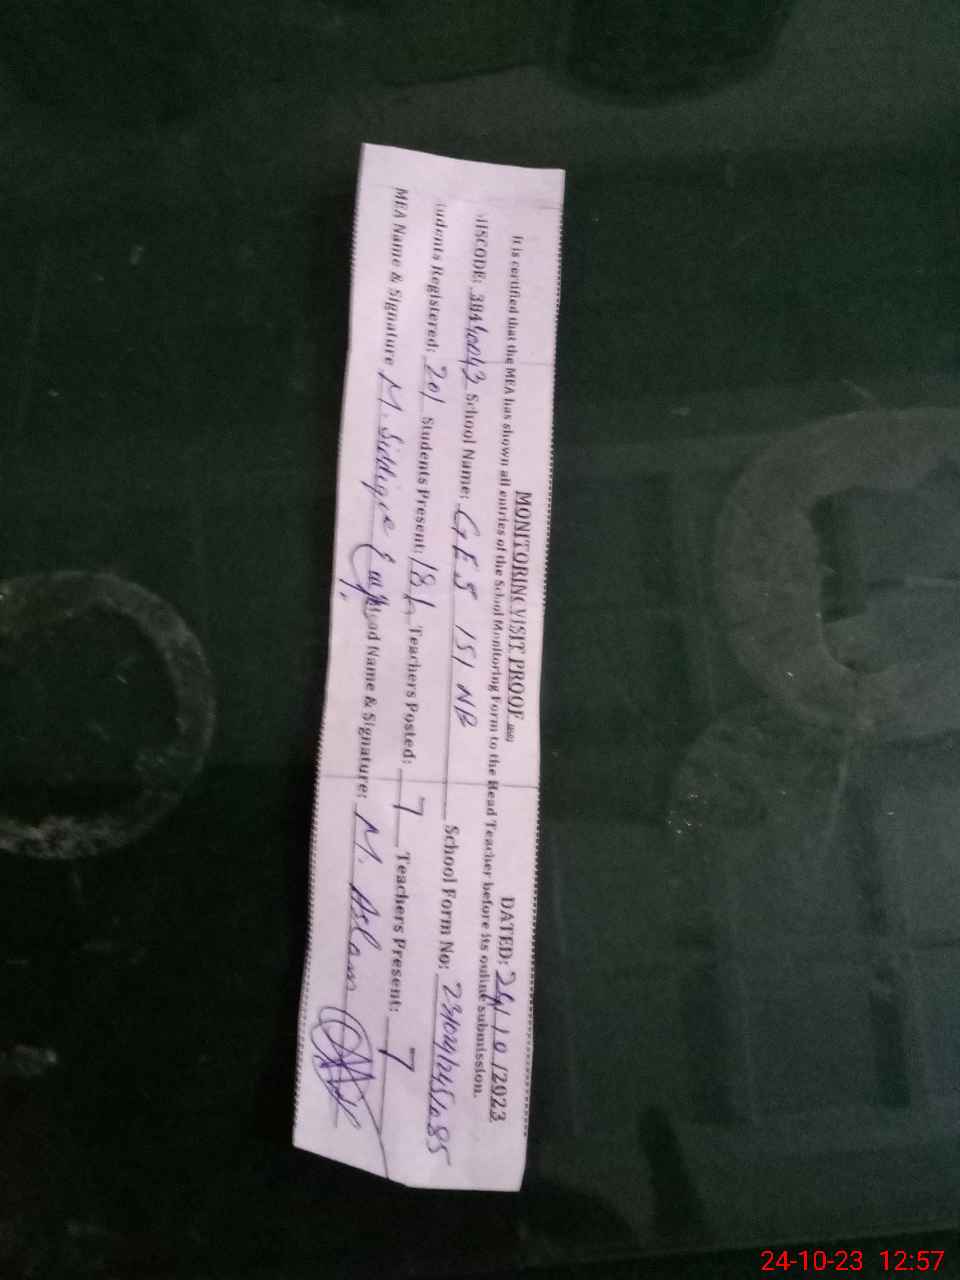 MONITORING VISIT PROOF
DATED: 24/10/2023
It is certified that the MEA has shown all entries of the School Monitoring Form to the Head Teacher before its online submission.
MISCODE: School Name: GES 151 NB School Form No:
udents Registered: 201 Students Present: 181 Teachers Posted: 7 Teachers Present: 7
MEA Name & Signature M. Siddique Head Name & Signature: M. Aslam
24-10-23 12:57